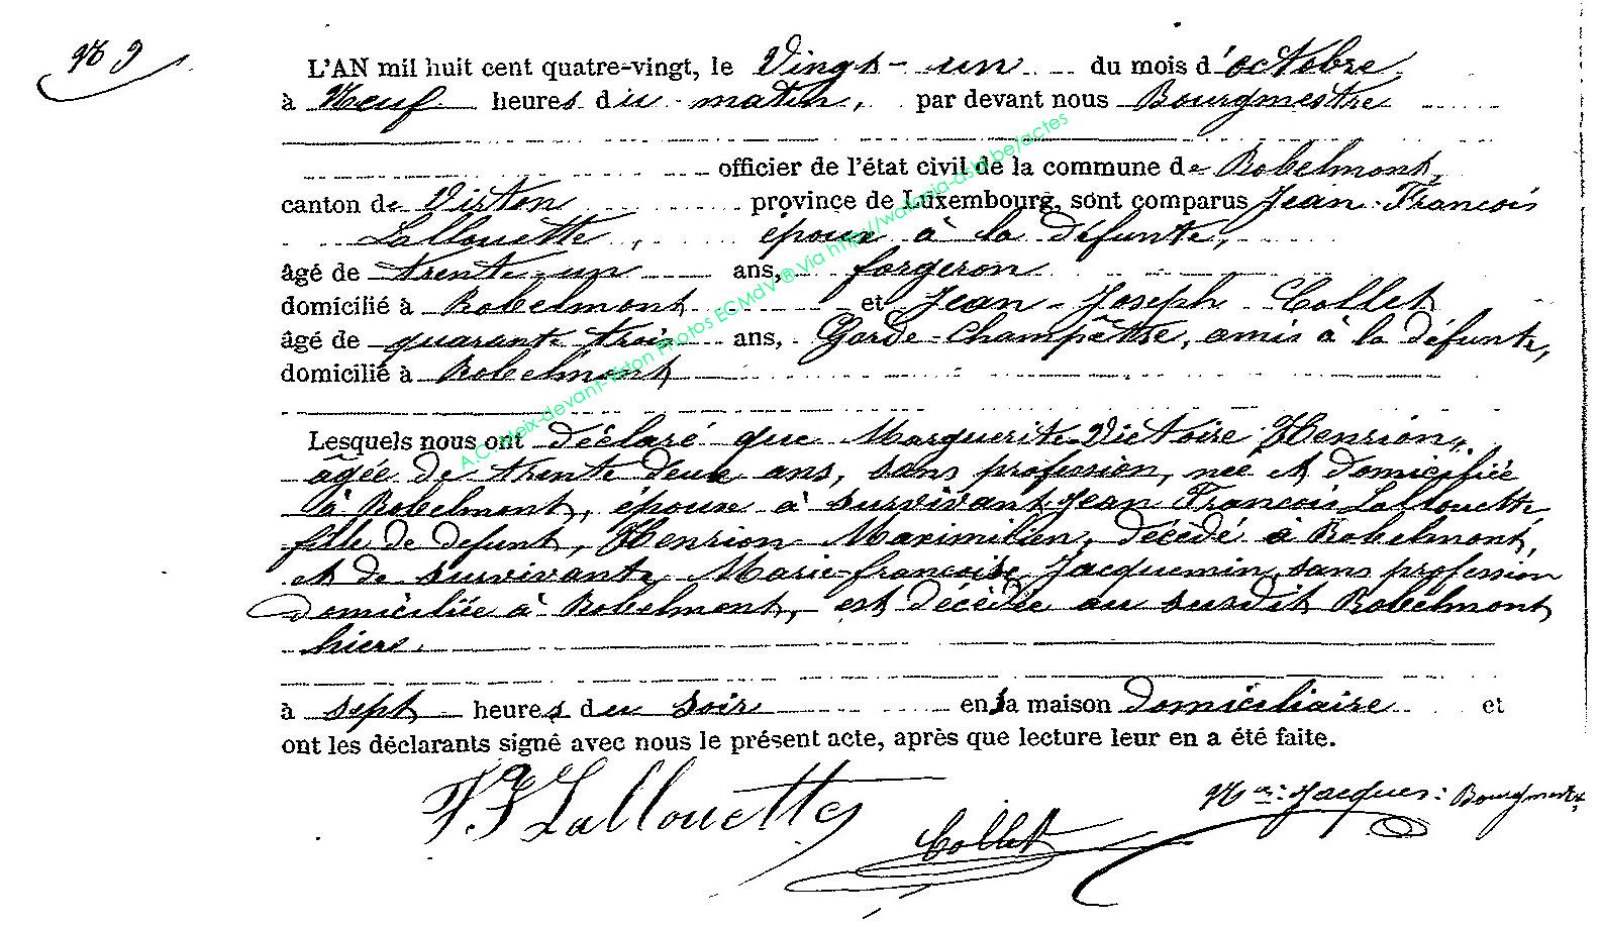 N° 9
L'AN mil huit cent quatre-vingt, le Vingt-un du mois d'octobre
à Neuf heures du matin, par devant nous Bourgmestre
officier de l'état civil de la commune de Robelmont,
canton de Virton province de Luxembourg, sont comparus Jean-François
Lallouette, époux à la défunte,
âgé de trente-un ans, forgeron
domicilié à Robelmont et Jean-Joseph Collet
âgé de quarante trois ans, Garde-Champêtre, amis à la défunte,
domicilié à Robelmont
Lesquels nous ont déclaré que Marguerite-Victoire Henrion,
âgée de trente deux ans, sans profession, née et domiciliée
à Robelmont, épouse à survivant Jean François Lallouette
fille de defunt, Henrion Maximilien, décédé à Robelmont,
et de survivante Marie-françoise Jacquemin, sans profession
domiciliée à Robelmont, est décédée au susdit Robelmont
hiers.
à sept heures du soir en sa maison domiciliaire et
ont les déclarants signé avec nous le présent acte, après que lecture leur en a été faite.
J.F Lallouette
Collet
Jacques: Bourgmestre
A.C. Meix-devant-Virton Photos ECMdV ® Via http://wallonia-asbl.be/actes